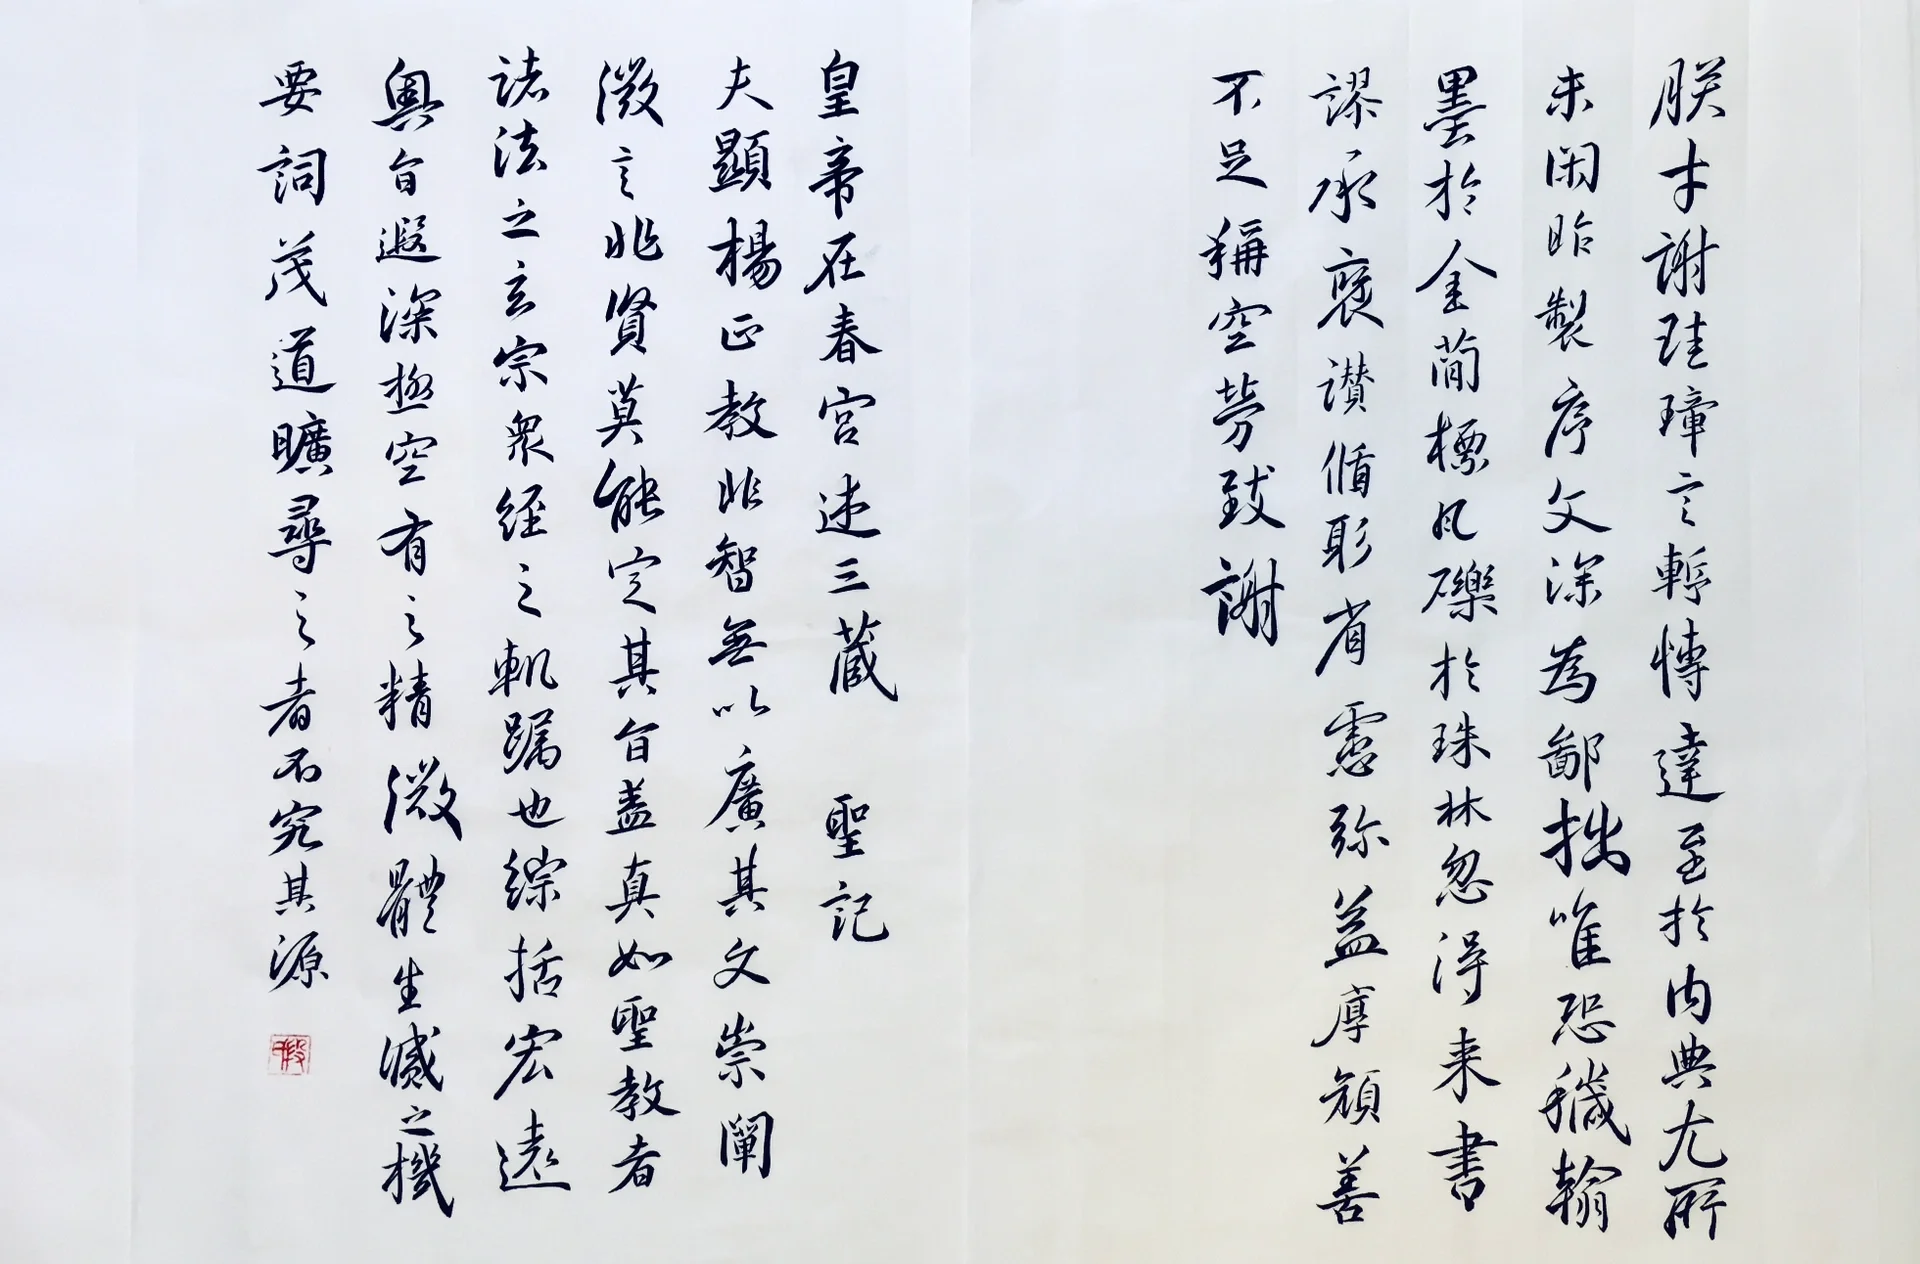 朕才謝珪璋言慙慱達至於内典尤所
未閑昨製序文深為鄙拙唯恐穢翰
墨於金蕳標瓦礫於珠林忽得来書
謬承褒讃循躬省慮弥益厚顔善
不足稱空勞致謝
皇帝在春宮述三藏 聖記
夫顯楊正教非智無以廣其文崇闡
微言非賢莫能定其旨盖真如聖教者
諸法之玄宗衆經之軌躅也綜括宏遠
奥旨遐深極空有之精微體生滅之機
要詞茂道曠尋之者不究其源